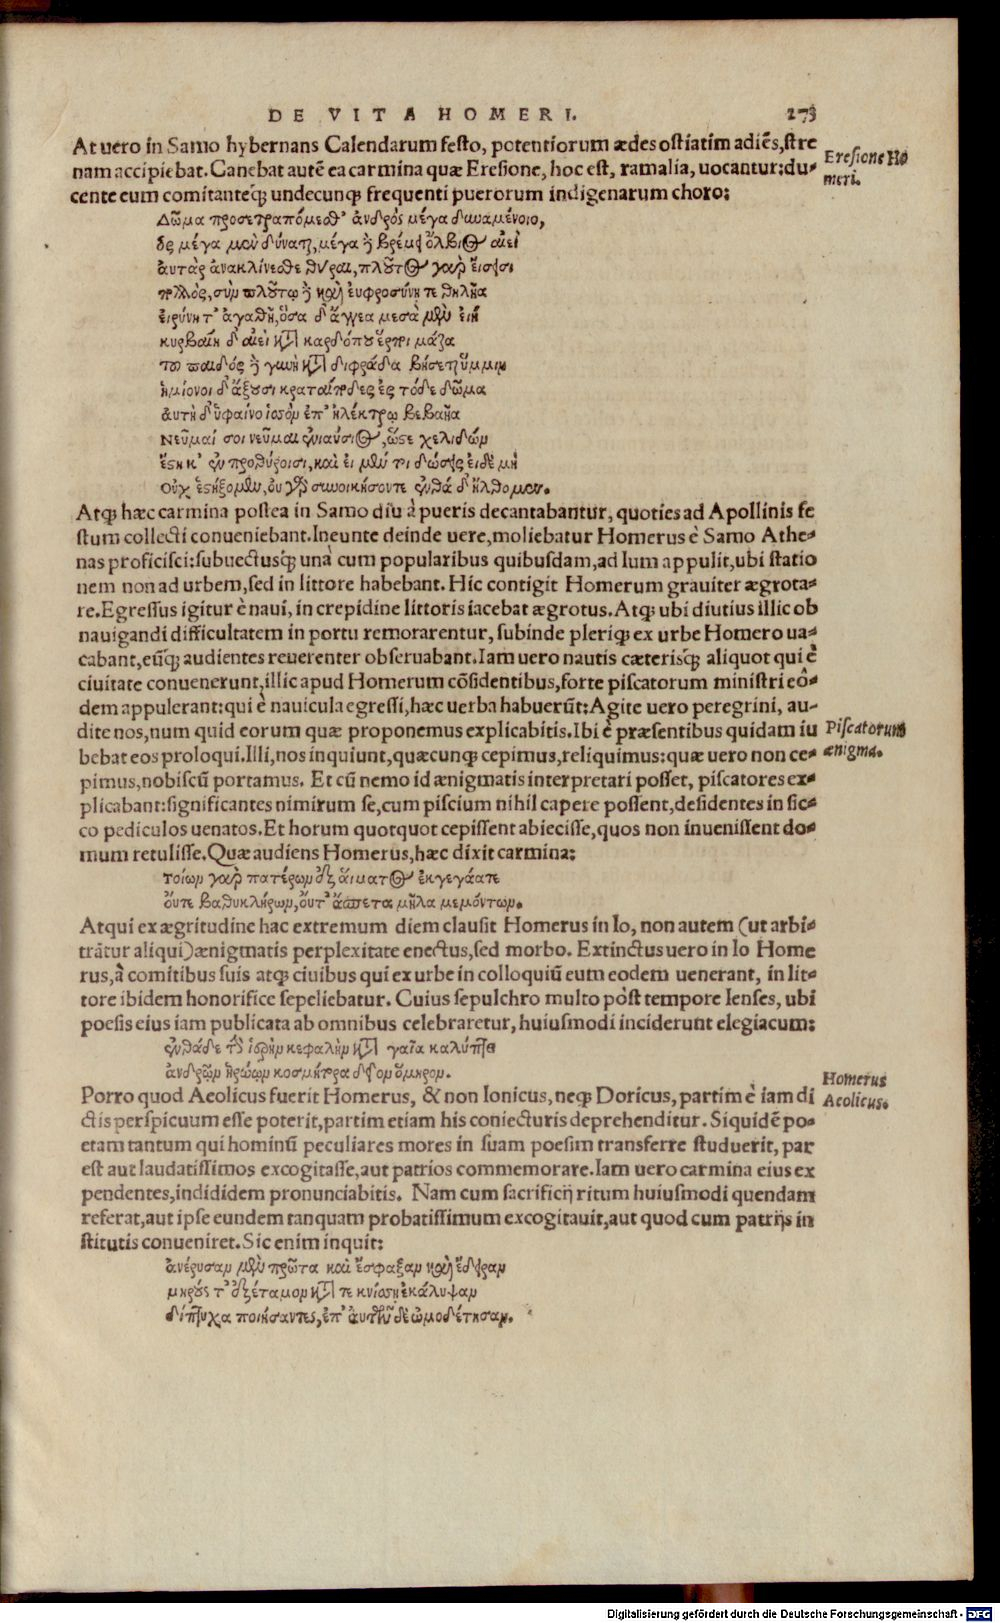 DE VITA HOMERI. 273
At uero in Samo hybernans Calendarum festo, potentiorum ædes ostiatim adiēs, stre
nam accipiebat. Canebat autē ea carmina quæ Eresione, hoc est, ramalia, uocantur: du-
cente eum comitanteq́; undecunq; frequenti puerorum indigenarum choro:
Eresione Ho
meri.
Δῶμα προσετραπόμεσθ' ἀνδρὸς μέγα δυναμένοιο,
ὃς μέγα μὲν δύναται, μέγα δὲ βρέμει ὄλβιος αἰεὶ
ἀυτὰρ ἀνακλίνεσθε θύραι, πλοῦτος γὰρ ἔισεισι
πολλὸς, σὺν πλούτῳ δὲ καὶ ἐυφροσύνη τε θηλῆα
ἐιρήνη τ' ἀγαθὴ, ὅσα δ' ἄγγεα μεσὰ μὲν ἐίη
κυρβαίη δ' αἰεὶ κατὰ καρδόπου ἕρπει μάζα
τοῦ παιδὸς δὲ γυνὴ κατὰ διφράδα βήσεται ὔμμιν
ἡμίονοι δ' ἄξουσι κραταίποδες ἐς τόδε δῶμα
ἀυτὴ δ' ὑφαίνοι ἱστὸν ἐπ' ἠλέκτρῳ βεβαῆα
Νεῦμαί σοι νεῦμαι ἐνιαύσιος, ὥστε χελιδὼν
ἔστηκ' ἐν προθύροισι, καὶ ἐι μέν τι δώσεις ἐιδὲ μὴ
Ουχ ἑστήξομεν, ου γὰρ συνοικήσοντε ἐνθά δ' ἤλθομεν.
Atq; hæc carmina postea in Samo diu à pueris decantabantur, quoties ad Apollinis fe
stum collecti conueniebant. Ineunte deinde uere, moliebatur Homerus è Samo Athe-
nas proficisci: subuectusq́; unà cum popularibus quibusdam, ad Ium appulit, ubi statio
nem non ad urbem, sed in littore habebant. Hic contigit Homerum grauiter ægrota-
re. Egressus igitur è naui, in crepidine littoris iacebat ægrotus. Atq; ubi diutius illic ob
nauigandi difficultatem in portu remorarentur, subinde pleriq; ex urbe Homero ua-
cabant, eūq; audientes reuerenter obseruabant. Iam uero nautis cæterisq́; aliquot qui è
ciuitate conuenerunt, illic apud Homerum cōsidentibus, forte piscatorum ministri eô-
dem appulerant: qui è nauicula egressi, hæc uerba habuerūt: Agite uero peregrini, au-
dite nos, num quid eorum quæ proponemus explicabitis. Ibi è præsentibus quidam iu
bebat eos proloqui. Illi, nos inquiunt, quæcunq; cepimus, reliquimus: quæ uero non ce-
pimus, nobiscū portamus. Et cū nemo id ænigmatis interpretari posset, piscatores ex-
plicabant: significantes nimirum se, cum piscium nihil capere possent, desidentes in sic-
co pediculos uenatos. Et horum quotquot cepissent abiecisse, quos non inuenissent do-
mum retulisse. Quæ audiens Homerus, hæc dixit carmina:
Piscatorum
ænigma.
τοίων γὰρ πατέρων ἐξ αἵματος ἐκγεγάατε
ὄυτε βαθυκλήρων, ὄυτ' ἄσπετα μῆλα μεμόντων.
Atqui ex ægritudine hac extremum diem clausit Homerus in Io, non autem (ut arbi-
trātur aliqui) ænigmatis perplexitate enectus, sed morbo. Extinctus uero in Io Home
rus, à comitibus suis atq; ciuibus qui ex urbe in colloquiū eum eodem uenerant, in lit-
tore ibidem honorifice sepeliebatur. Cuius sepulchro multo pòst tempore Ienses, ubi
poesis eius iam publicata ab omnibus celebraretur, huiusmodi inciderunt elegiacum:
ἐνθάδε τὴν ἱερὴν κεφαλὴν κατὰ γαῖα καλύπτει
ἀνδρῶν ἡρώων κοσμήτορα θεῖον ὅμηρον.
Porro quod Aeolicus fuerit Homerus, & non Ionicus, neq; Doricus, partim è iam di
ctis perspicuum esse poterit, partim etiam his coniecturis deprehenditur. Siquidē po-
etam tantum qui hominū peculiares mores in suam poesim transferre studuerit, par
est aut laudatissimos excogitasse, aut patrios commemorare. Iam uero carmina eius ex
pendentes, indididem pronunciabitis. Nam cum sacrificij ritum huiusmodi quendam
referat, aut ipse eundem tanquam probatissimum excogitauit, aut quod cum patrijs in
stitutis conueniret. Sic enim inquit:
Homerus
Aeolicus.
ἀνέρυσαν μὲν πρῶτα καὶ ἔσφαξαν καὶ ἔδειραν
μηρούς τ' ἐξέταμον κατὰ τε κνίσῃ ἐκάλυψαν
δίπτυχα ποιήσαντες, ἐπ' ἀυτῶν δὲ ὠμοθέτησαν.
Digitalisierung gefördert durch die Deutsche Forschungsgemeinschaft - DFG